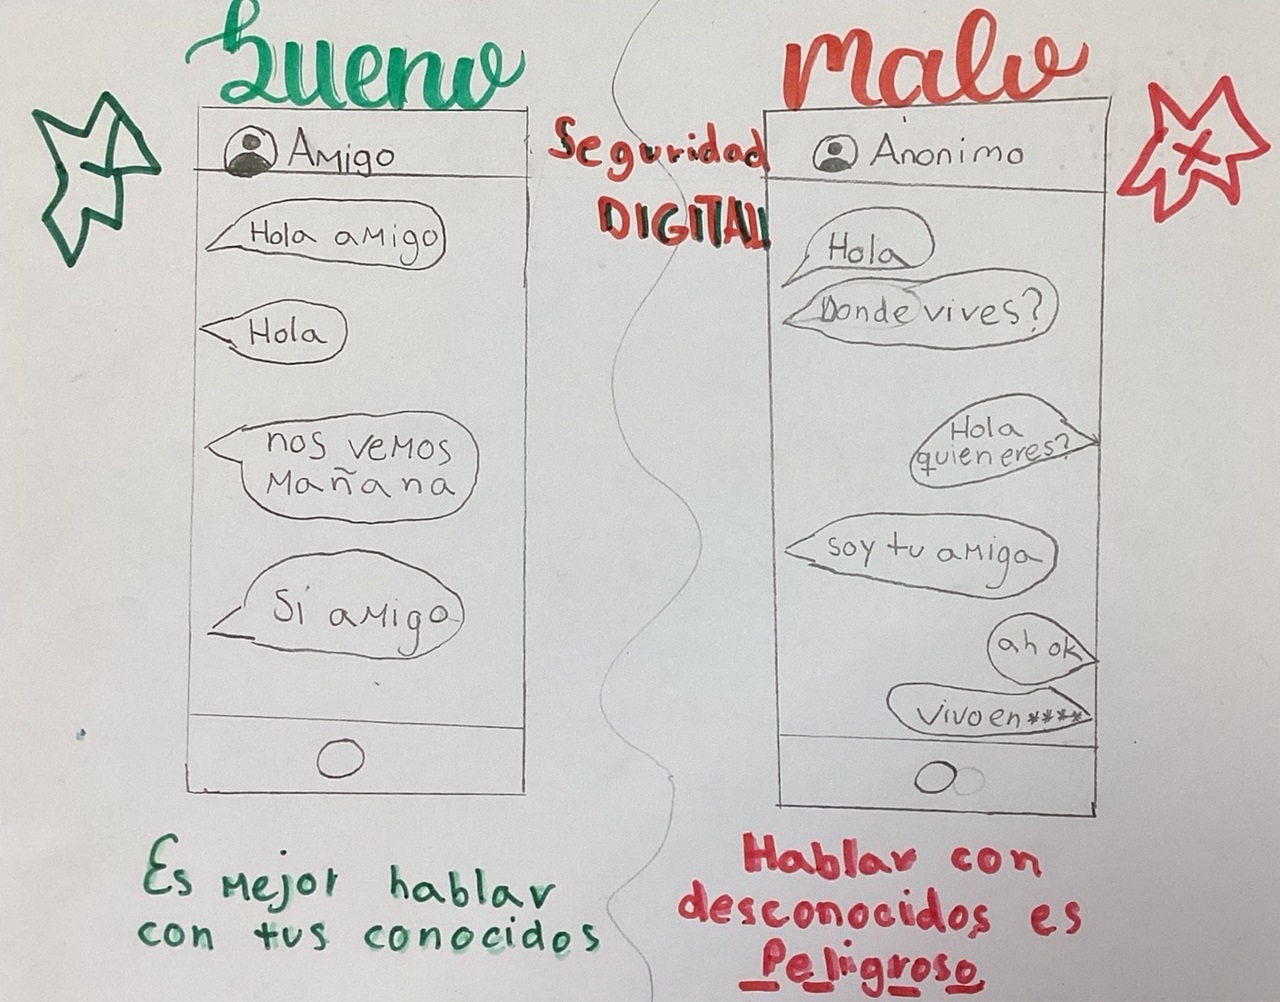 Bueno
Amigo
Hola amigo
Hola
nos vemos
mañana
Sí amigo
Es mejor hablar
con tus conocidos
Seguridad
DIGITAL
Malo
Anonimo
Hola
Donde vives?
Hola
quien eres?
soy tu amiga
ah ok
vivo en ****
Hablar con
desconocidos es
Peligroso